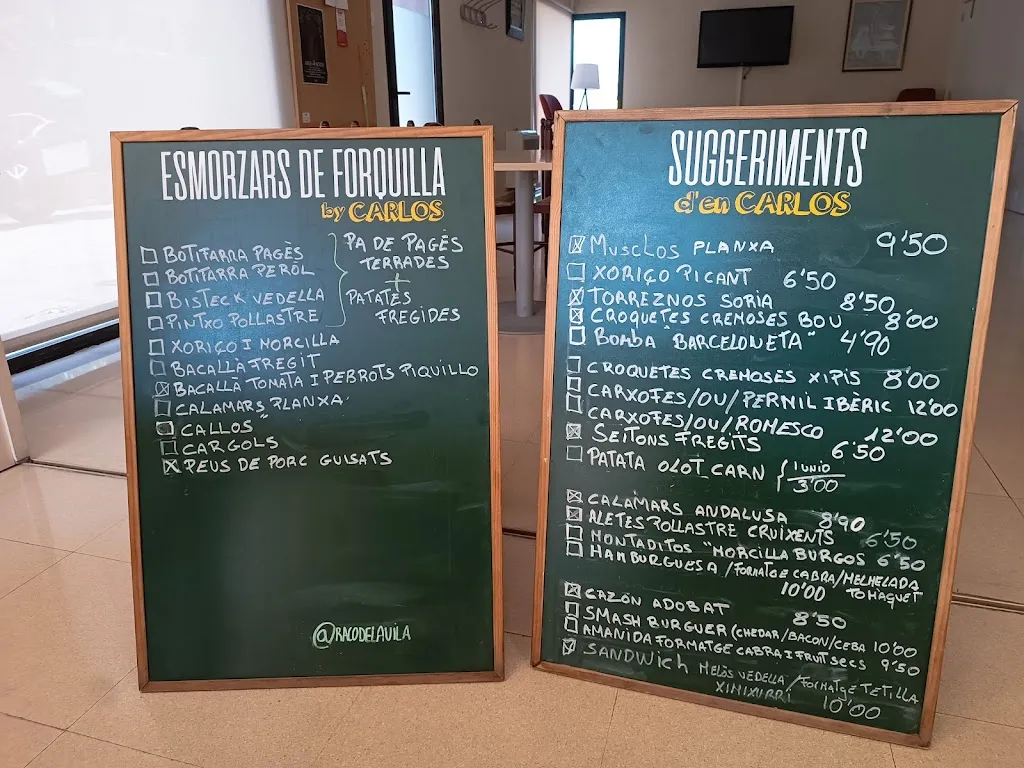 ESMORZARS DE FORQUILLA
by CARLOS
BOTIFARRA PAGÈS
BOTITARRA PEROL
BISTECK VEDELLA
PINTXO POLLASTRE
PA DE PAGÈS
TERRADES
+
PATATES
FREGIDES
XORIÇO I MORCILLA
BACALLÀ FREGIT
BACALLÀ TOMATA I PEBROTS PIQUILLO
CALAMARS PLANXA
CALLOS
CARGOLS
PEUS DE PORC GUISATS
@RACODELAVILA
SUGGERIMENTS
d'en CARLOS
MUSCLOS PLANXA 9'50
XORIÇO PICANT 6'50
TORREZNOS SORIA 8'50
CROQUETES CREMOSES BOU 8'00
BOMBA "BARCELONETA" 4'90
CROQUETES CREMOSES XIPIS 8'00
CARXOFES/OU/PERNIL IBÈRIC 12'00
CARXOFES/OU/ROMESCO 12'00
SEITONS FREGITS 6'50
PATATA OLOT CARN { 1 UNID 3'00
CALAMARS ANDALUSA 8'90
ALETES POLLASTRE CRUIXENTS 6'50
MONTADITOS "MORCILLA BURGOS 6'50
HAMBURGUESA /FORMATGE CABRA/MELMELADA
10'00 TOMAQUET
CAZÓN ADOBAT 8'50
SMASH BURGUER (CHEDAR/BACON/CEBA 10'00
AMANIDA FORMATGE CABRA I FRUIT SECS 9'50
SANDWICH MELÒS VEDELLA /FORMATGE TETILLA
XIMIXURRI 10'00